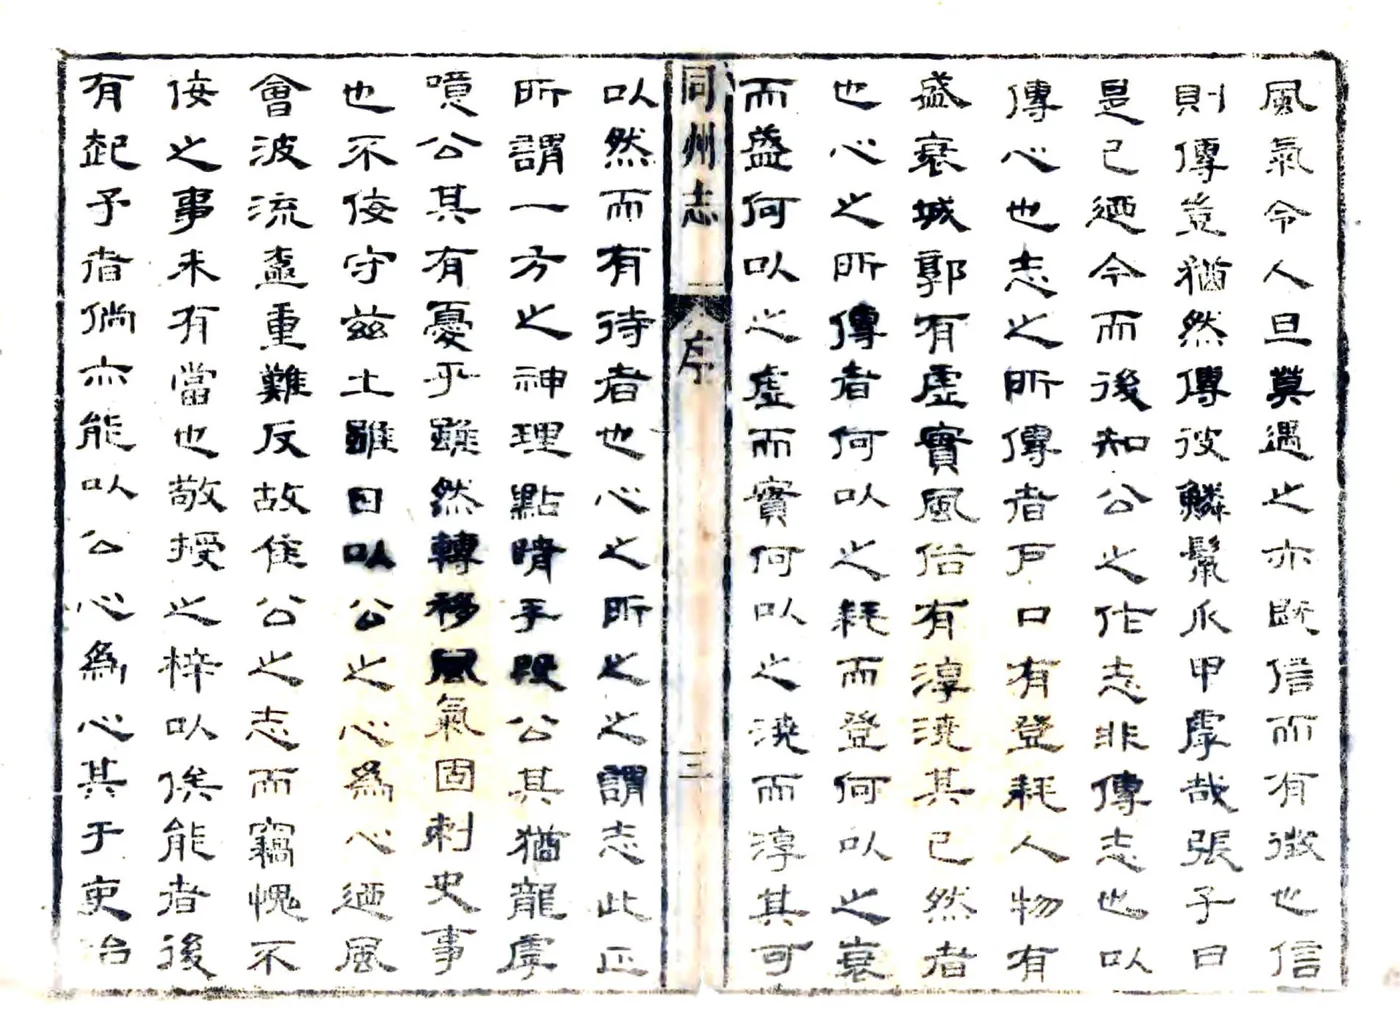 風氣令人旦莫遇之亦旣信而有徵也信
則傳豈猶然傳彼鱗鬣爪甲虖哉張子曰
是已迺今而後知公之作志非傳志也以
傳心也志之所傳者戶口有登耗人物有
盛衰城郭有虛實風俗有淳澆其已然者
也心之所傳者何以之耗而登何以之衰
而盛何以之虛而實何以之澆而淳其可
同州志 序 三
以然而有待者也心之所之之謂志此正
所謂一方之神理點睛手段公其猶龍虖
噫公其有憂乎雖然轉移風氣固刺史事
也不佞守茲土雖日以公之心為心迺風
會波流重難反故公之志而竊愧不
佞之事未有當也敬授之梓以俟能者後
有起予者倘亦能以公心為心其于吏治